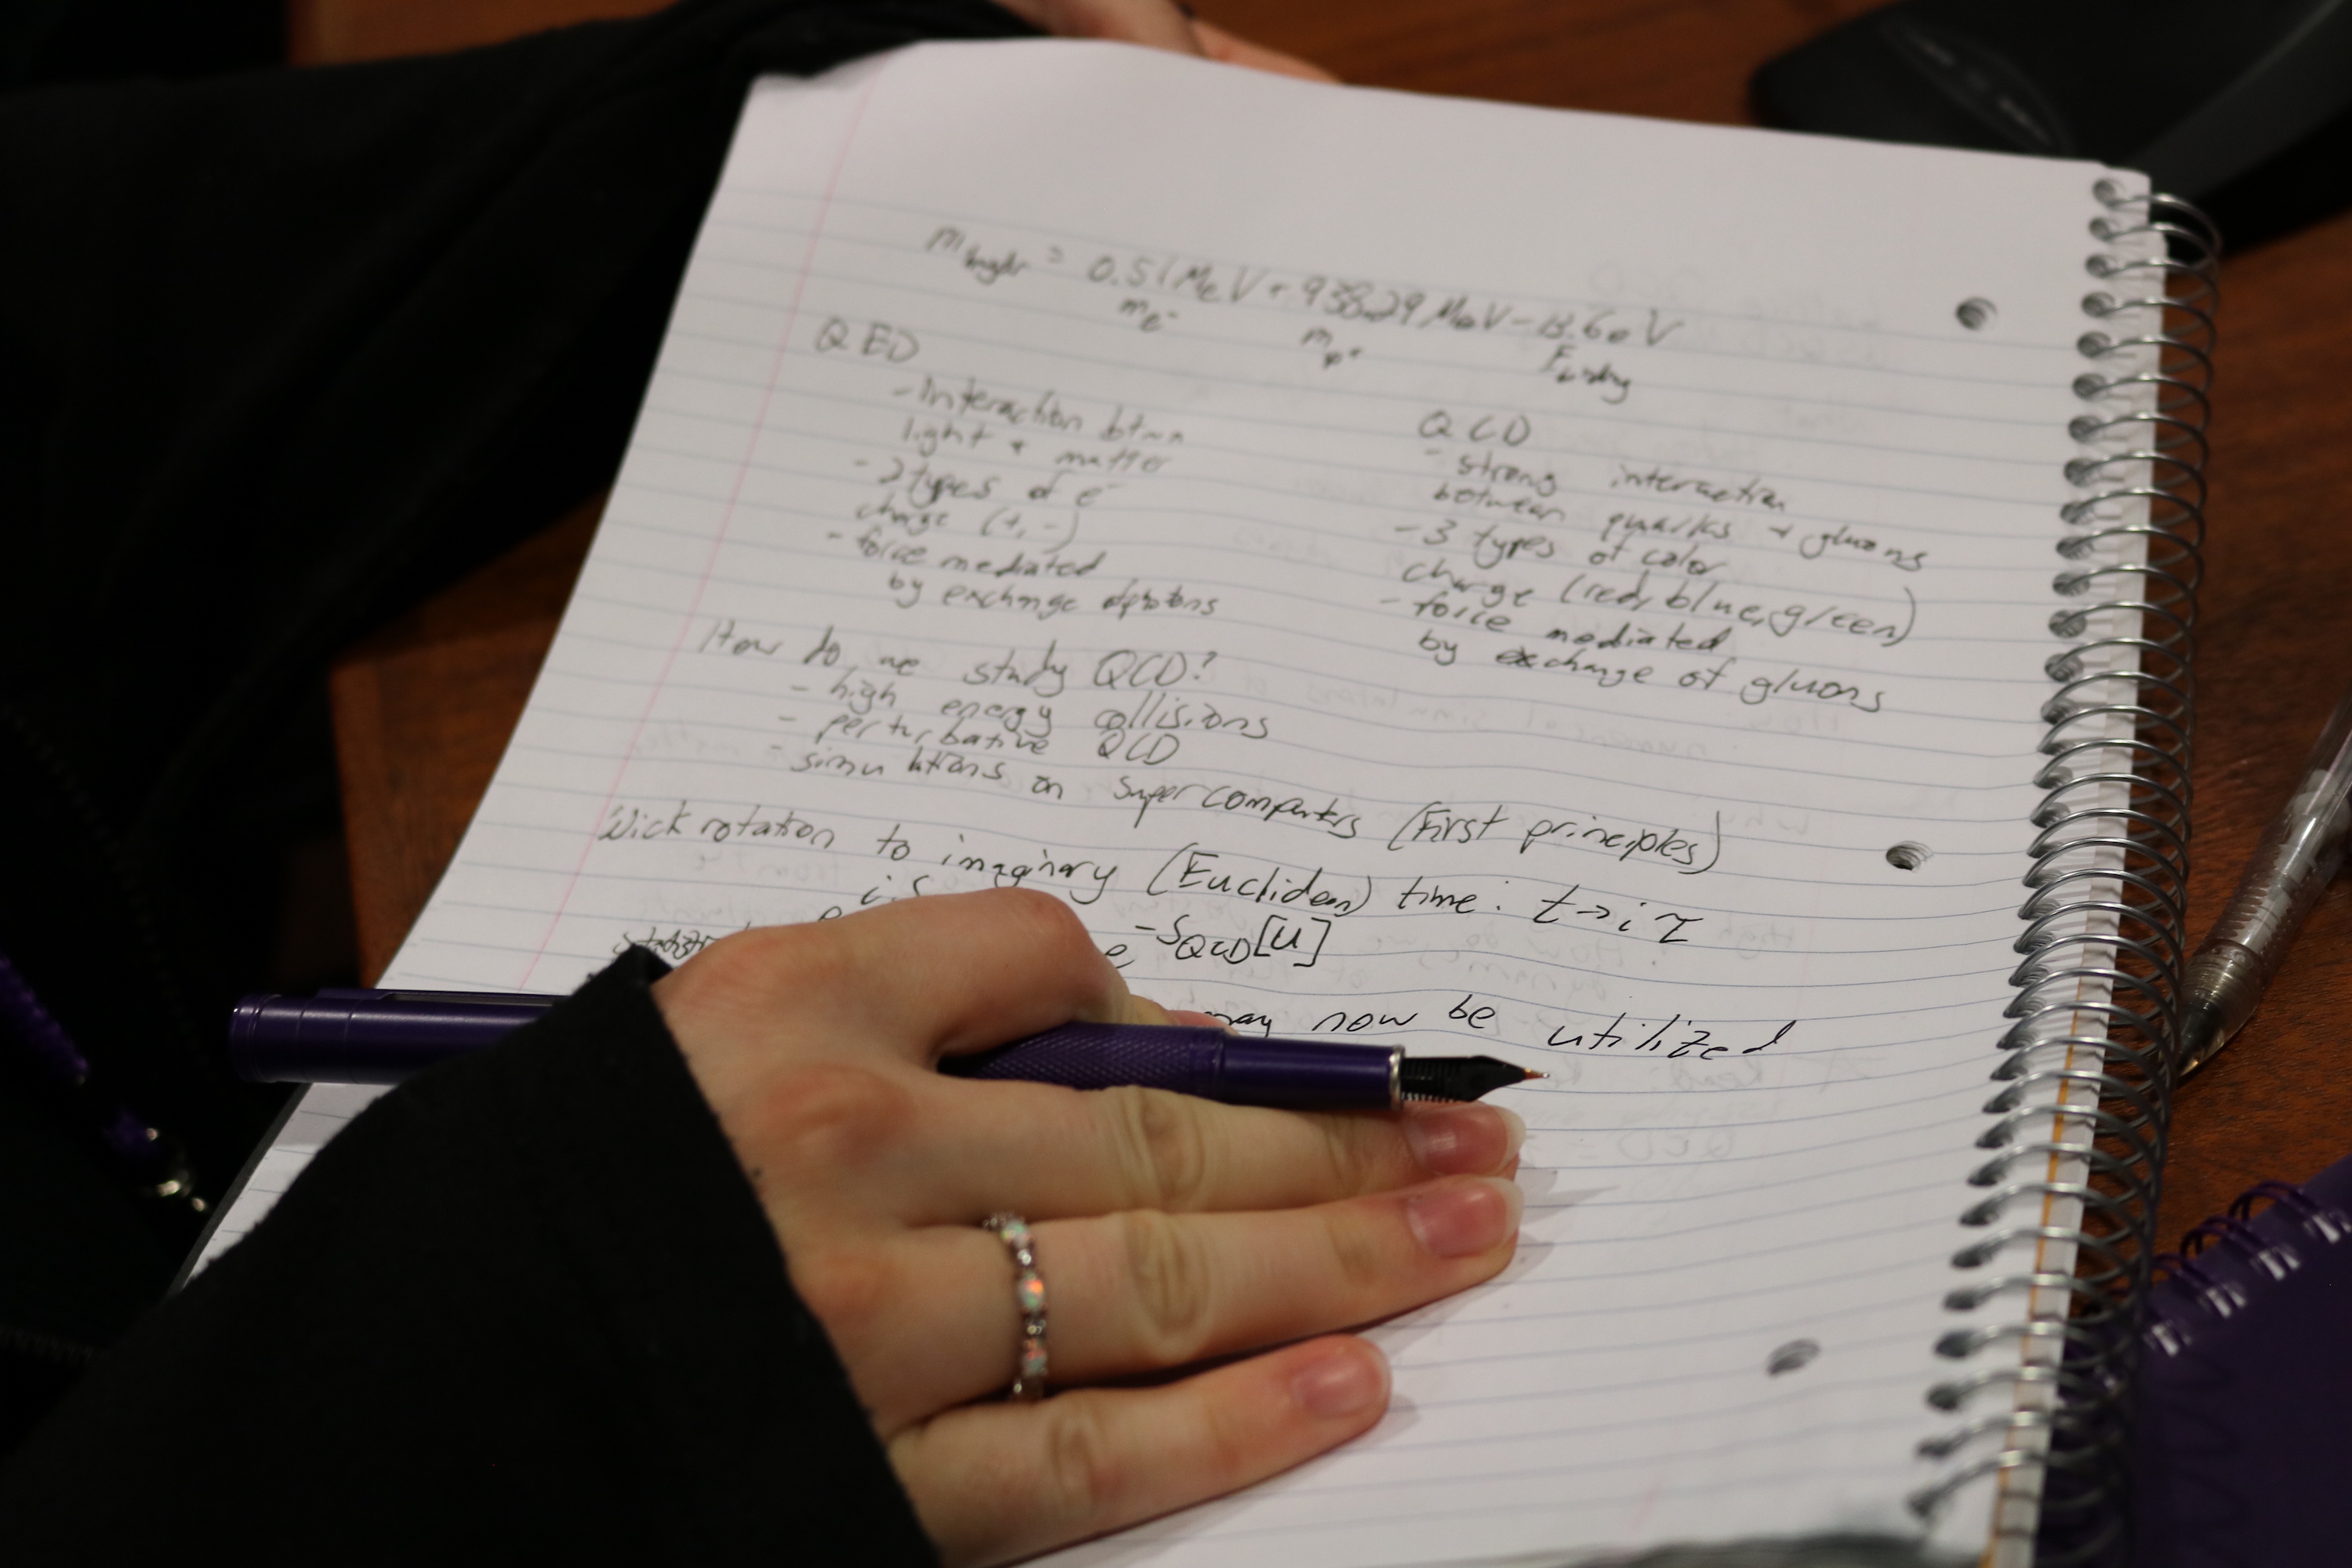 m = 0.51 MeV + 938.29 MeV - 13.6 eV
m e⁻ m p⁺ E binding
QED
- Interaction btwn
light + matter
- 2 types of e⁻
charge (+, -)
- force mediated
by exchange of photons
QCD
- strong interaction
between quarks + gluons
- 3 types of color
charge (red, blue, green)
- force mediated
by exchange of gluons
How do we study QCD?
- high energy collisions
- perturbative QCD
- simulations on supercomputers (First principles)
Wick rotation to imaginary (Euclidean) time: t → iτ
i S
e e^-S_QCD[U]
may now be utilized